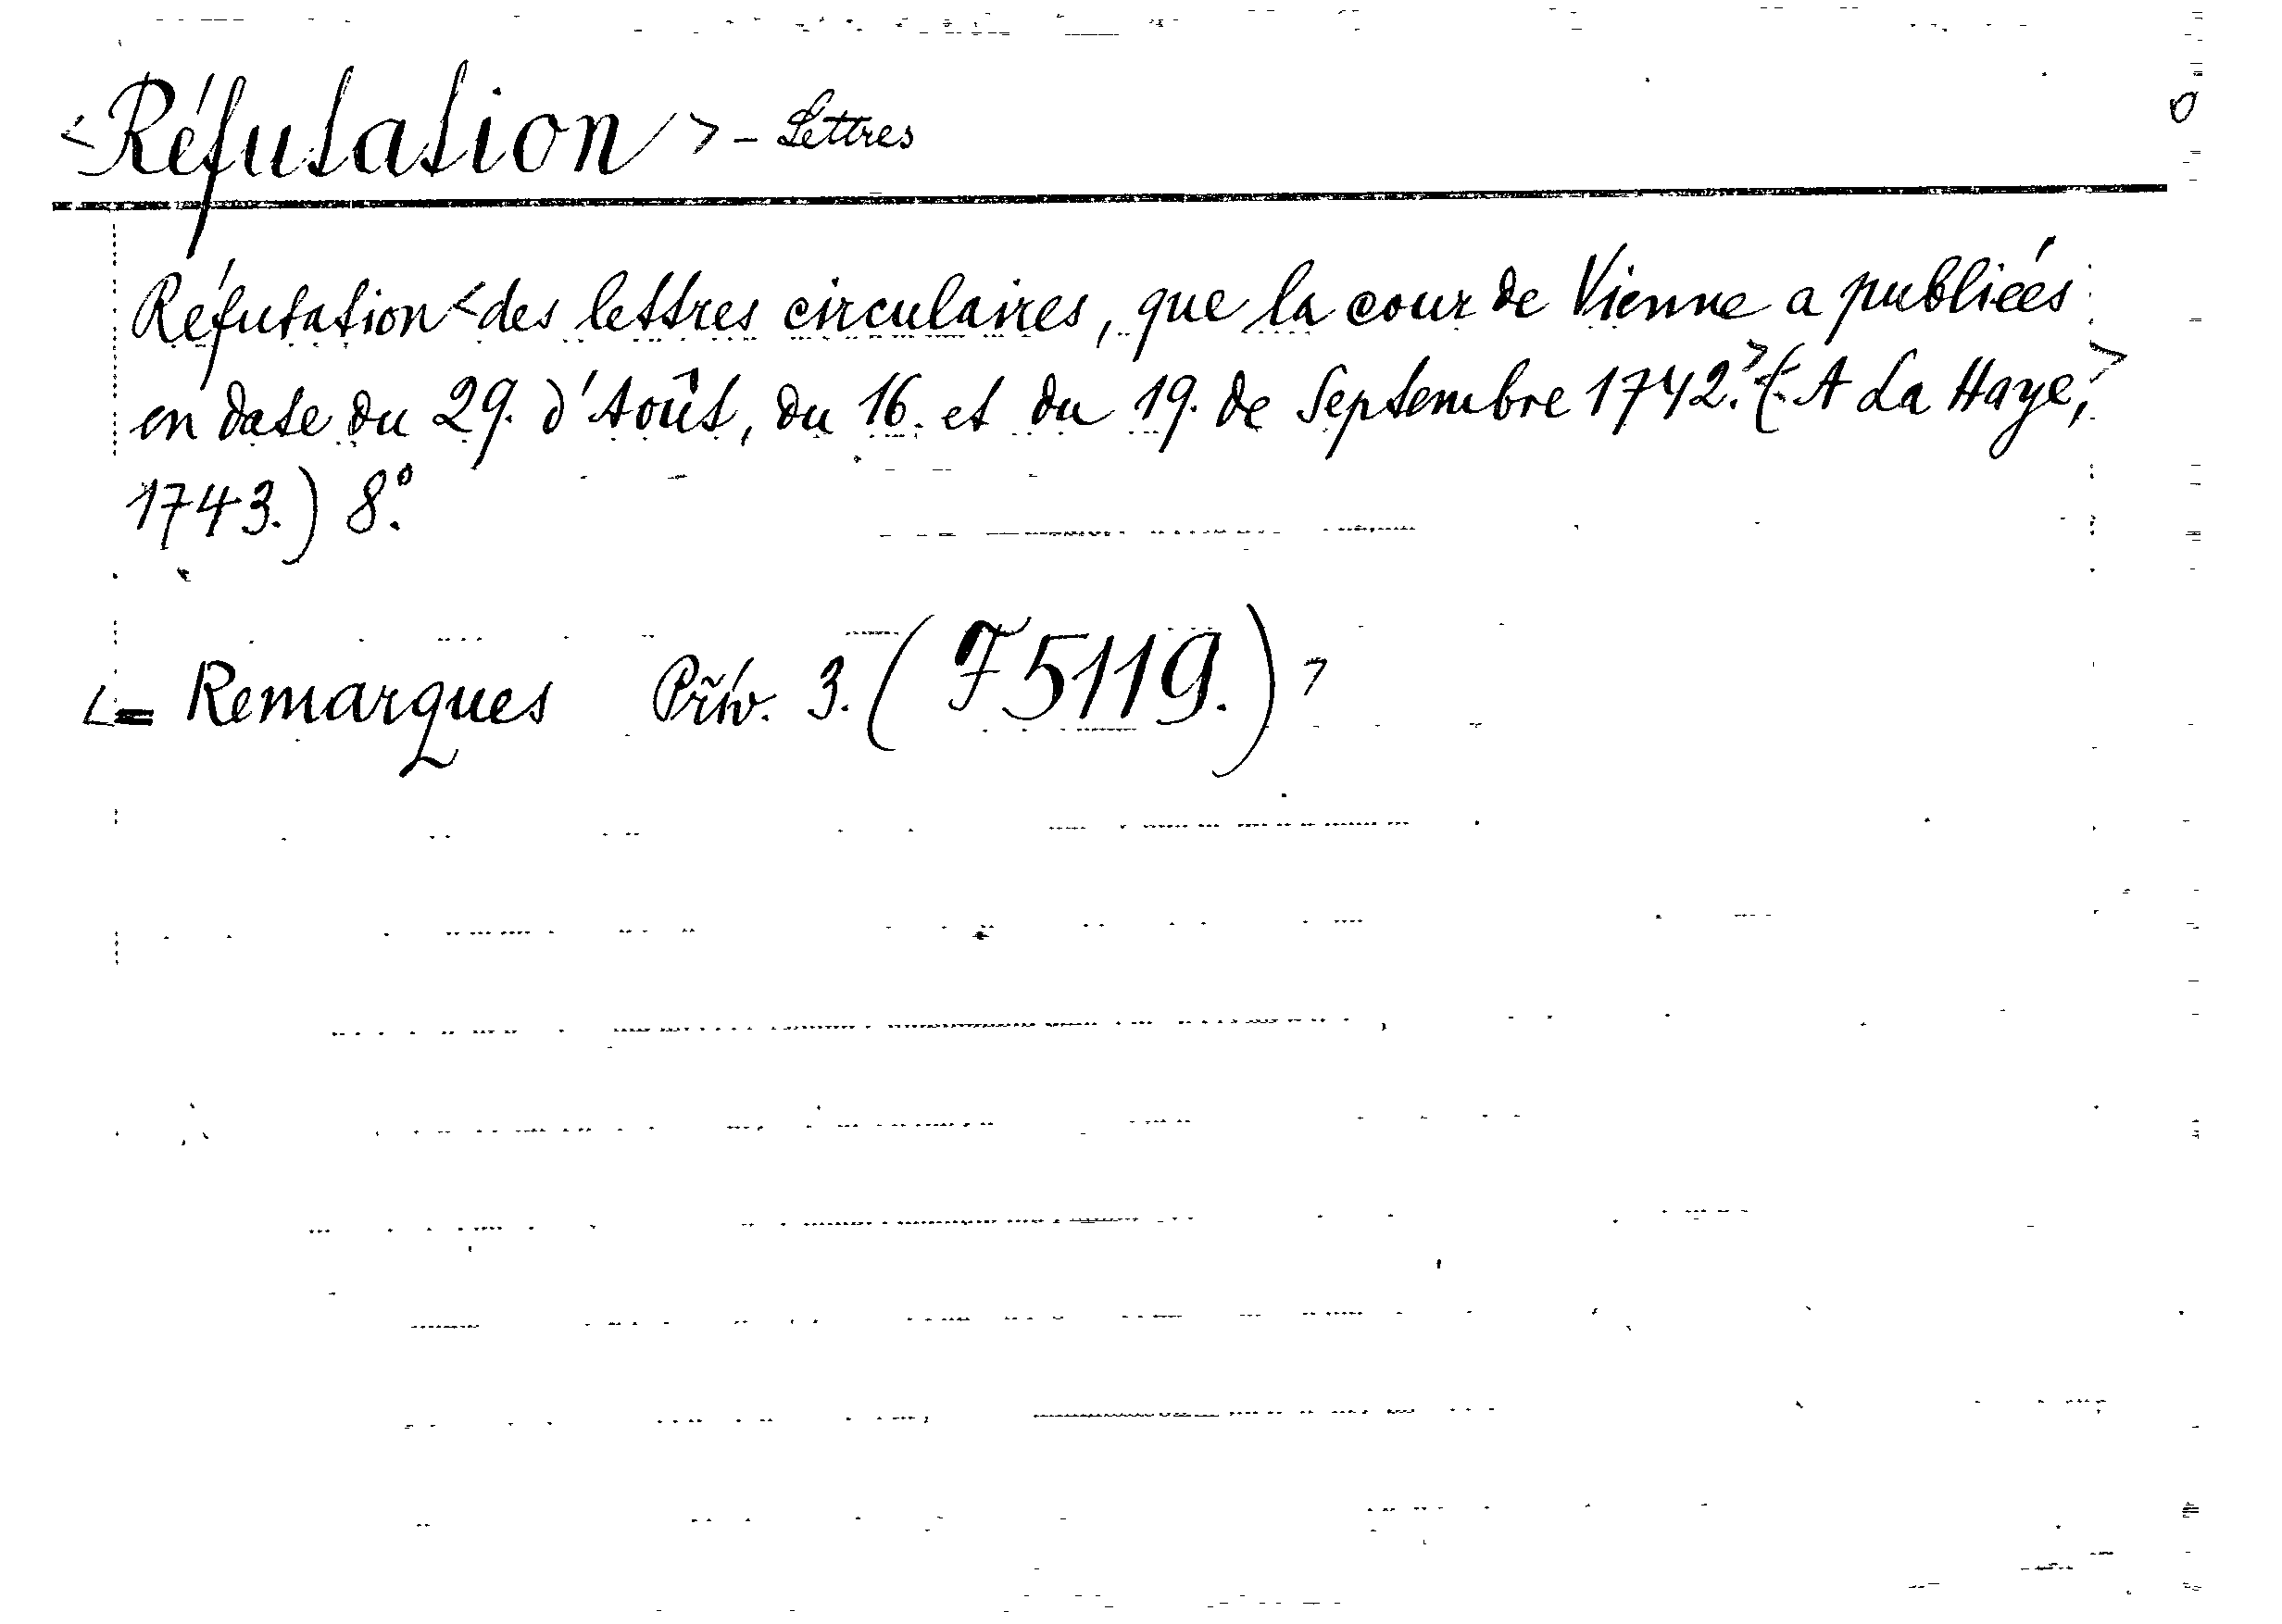 <Réfutation> - Lettres
Réfutation <des lettres circulaires, que la cour de Vienne a publiées
en date du 29. d'Août, du 16. et du 19. de Septembre 1742.> (< A La Haye,>
1743.) 8°.
<= Remarques 3. (F 5119.)>